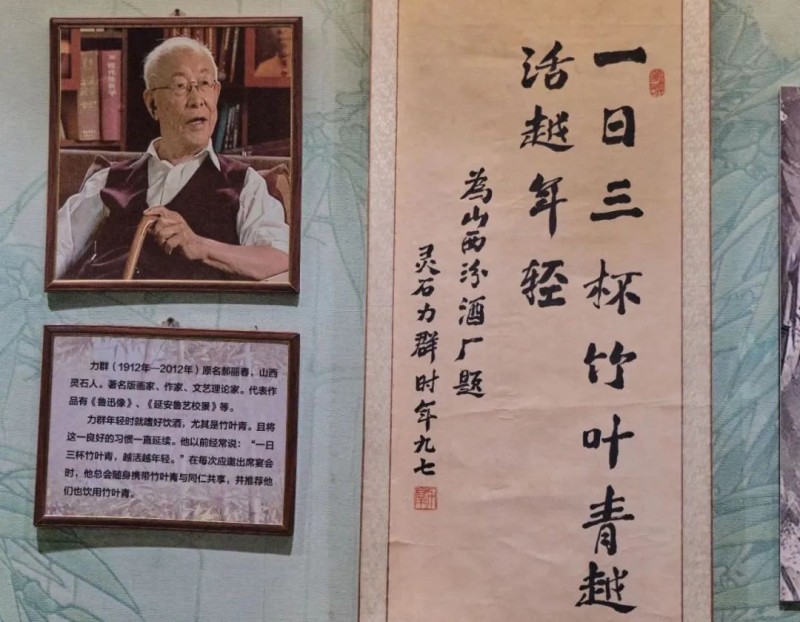 力群（1912年—2012年）原名郝丽春，山西
灵石人。著名版画家、作家、文艺理论家。代表作
品有《鲁迅像》、《延安鲁艺校景》等。
力群年轻时就嗜好饮酒，尤其是竹叶青。且将
这一良好的习惯一直延续。他以前经常说：“一日
三杯竹叶青，越活越年轻。”在每次应邀出席宴会
时，他总会随身携带竹叶青与同仁共享，并推荐他
们也饮用竹叶青。
一日三杯竹叶青越
活越年轻
为山西汾酒厂题
灵石力群时年九七